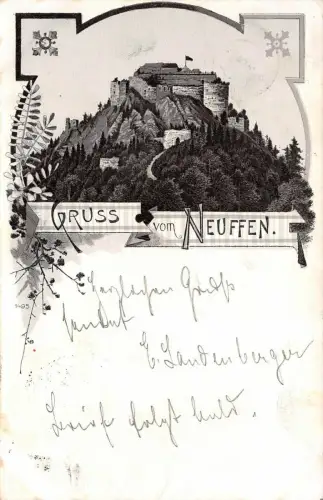 GRUSS VOM NEUFFEN.
Herzlichen Gruß
sendet
E. Landenberger
Brief folgt bald.